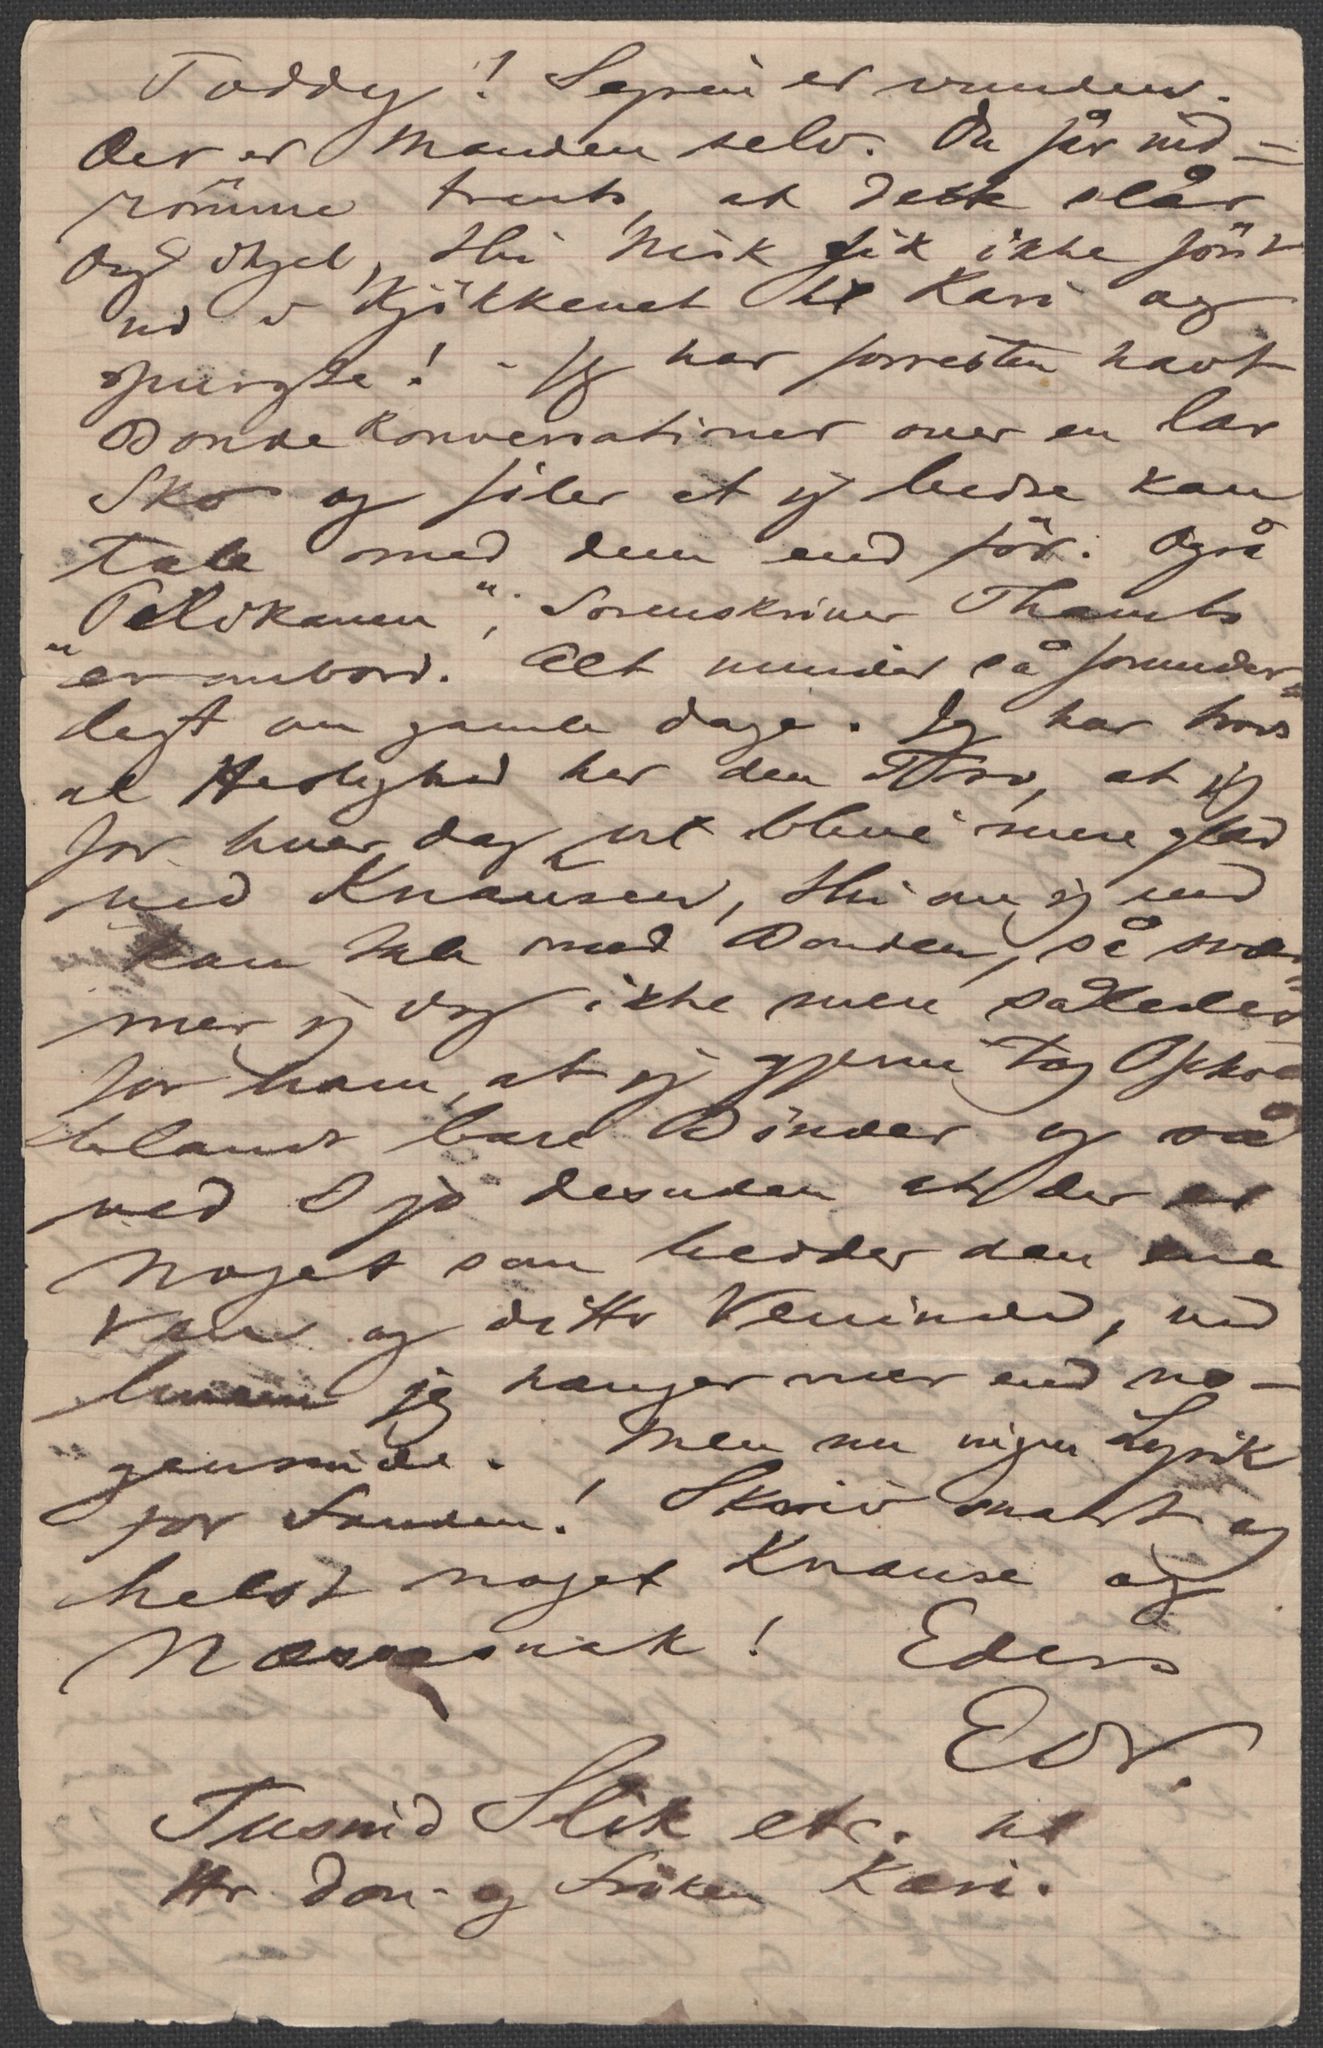 Toddy! Seyren er vunden.
Der er Manden selv. Du får ind-
römme trods, at dette slår
dog ihjel, thi Nisk gik ikke först
ud i Kjökkenet til Kari og
spurgte! - Jeg har forresten havt
Bondekonversationer over en lav
Sko og föler at jeg bedre kan
tale med dem end för. Også
"Pelikanen", Sorenskriver Thaulo
er ombord. Alt minder så forunder-
ligt om gamle dage. Jeg har trods
al Herlighed her den Tro, at jeg
for hver dag vil blive mere glad
ved Knausen, thi om jeg end
kan tale med Bonden, så svær-
mer jeg dog ikke mere således
for ham, at jeg gjerne tog Ophold
blandt bare Bönder og så
ved I jo desuden at der er
Noget som hedder den ene
Ven og ditto Veninde, ved
hvem jeg hænger mer end no-
gensinde. Men nu ingen Lyrik
for Fanden! Skriv snart og
helst noget Knause og
Næssesnak! Eders
EDV.
Tusind Slik etc. til
Hr. Don- og Fröken Kari.